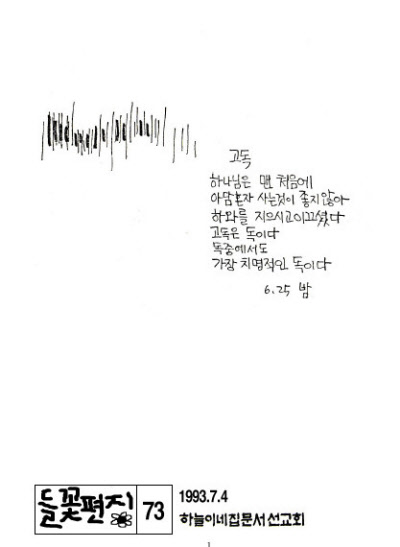 고독
하나님은 맨 처음에
아담혼자 사는것이 좋지않아
하와를 지으시고 이끄셨다
고독은 독이다
독중에서도
가장 치명적인 독이다
6.25 밤
들꽃편지 73
1993.7.4
하늘이네집문서선교회
1